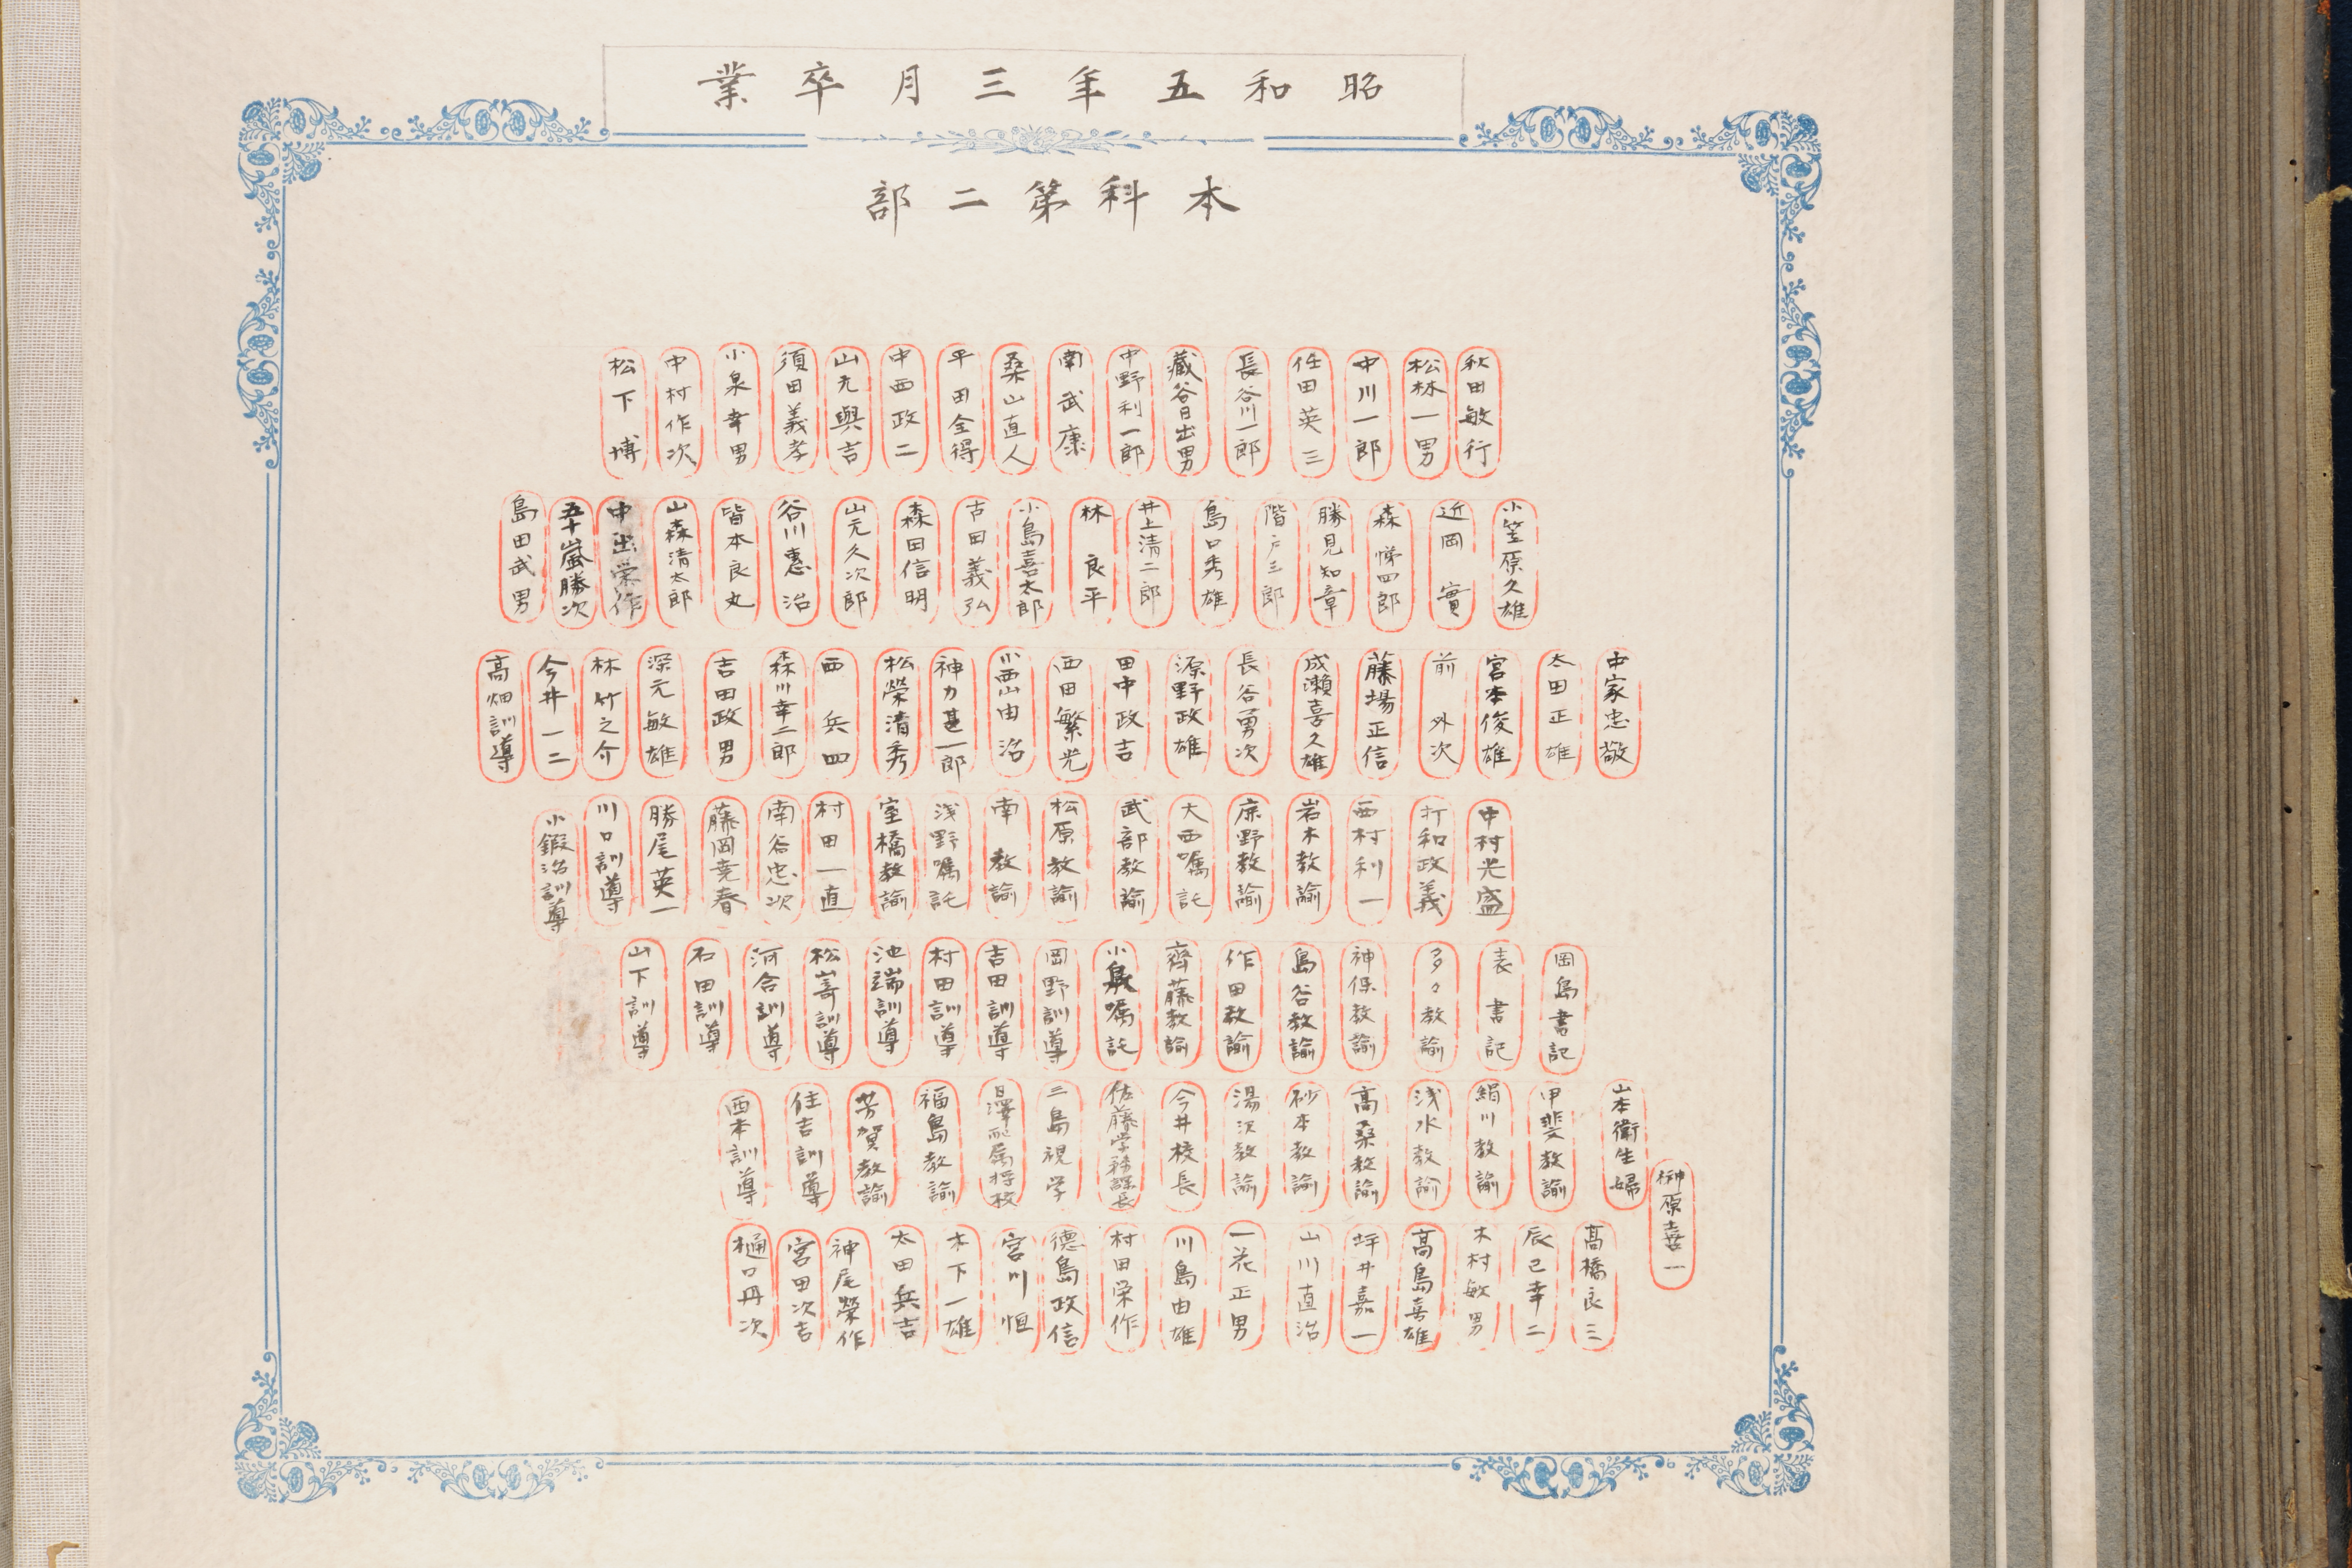 昭和五年三月卒業
本科第二部
秋田敏行
松林一男
中川一郎
任田英三
長谷川一郎
藏谷日出男
中野利一郎
南武康
桑山直人
平田全得
中西政二
山元與吉
須田義孝
小泉幸男
中村作次
松下博
小笠原久雄
近岡實
森悌四郎
勝見知章
階戸三郎
島口秀雄
井上清二郎
林良平
小島喜太郎
古田義弘
森田信明
山元久次郎
谷川惠治
皆本良丸
山森清太郎
中出栄作
五十嵐勝次
島田武男
中家忠敬
太田正雄
宮本俊雄
前外次
藤場正信
成瀬喜久雄
長谷勇次
源野政雄
田中政吉
西田繁光
小西山由治
神力甚一郎
松榮清秀
西兵四
森川幸二郎
吉田政男
深元敏雄
林竹之介
今井一二
高畑訓導
中村光盛
打和政義
西村利一
岩木教諭
庶野教諭
大西嘱託
武部教諭
松原教諭
南教諭
浅野嘱託
室橋教諭
村田一直
南谷忠次
藤岡堯春
勝尾英一
川口訓導
小鍜治訓導
岡島書記
表書記
多々教諭
神保教諭
島谷教諭
作田教諭
齊藤教諭
小泉嘱託
岡野訓導
吉田訓導
村田訓導
池端訓導
松嵜訓導
河合訓導
石田訓導
山下訓導
山本衛生婦
甲斐教諭
絹川教諭
浅水教諭
高桑教諭
砂本教諭
湯沢教諭
今井校長
佐藤学務課長
三島視学
澤配属将校
福島教諭
芳賀教諭
住吉訓導
西本訓導
榊原喜一
髙橋良三
辰己幸二
木村敏男
髙島喜雄
坪井嘉一
山川直治
一花正男
川島由雄
村田栄作
德島政信
宮川恒
木下一雄
太田兵吉
神尾榮作
宮田次吉
樋口丹次